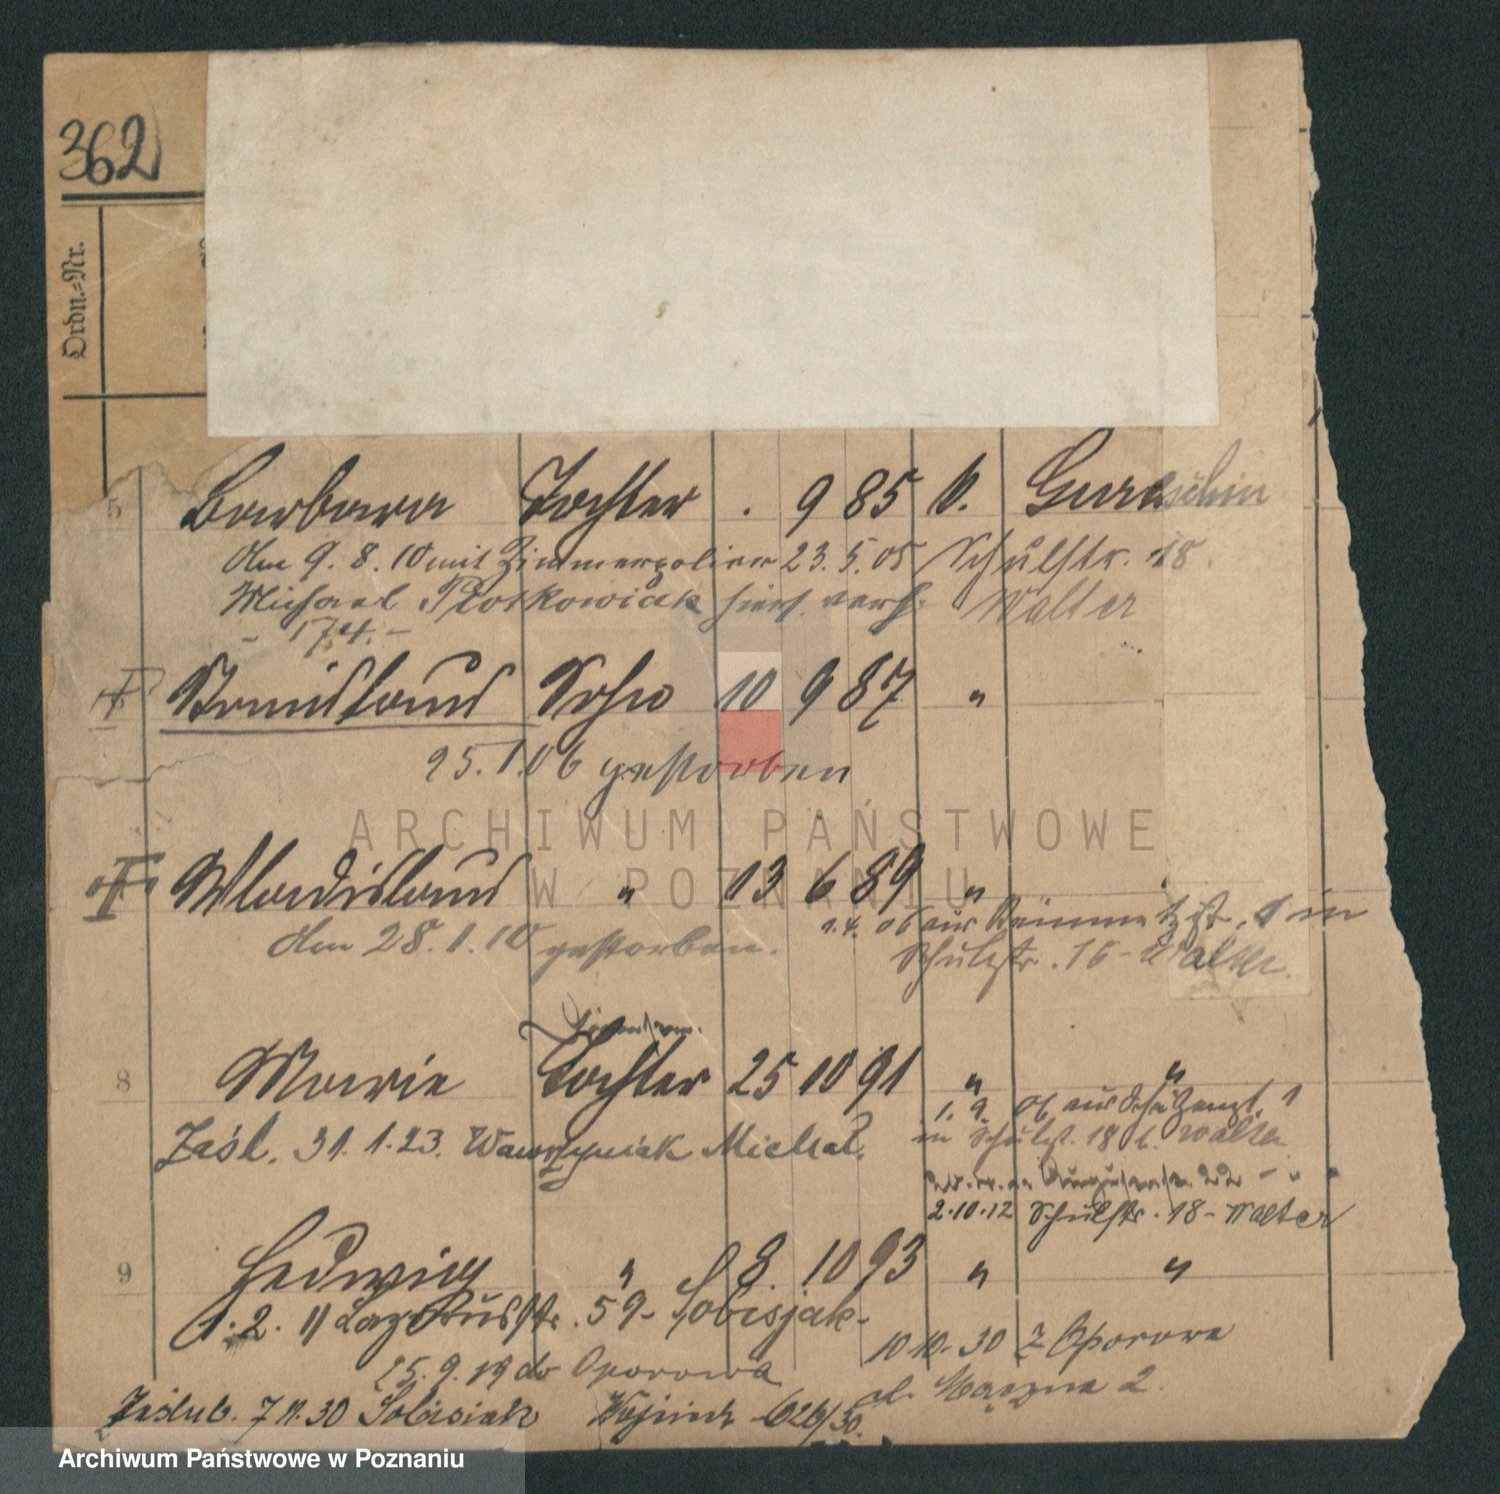 362
Ordn.-Nr.
5 Barbara Tochter . 9 85 k. Gurtschin
Am 9. 8. 10 mit Zimmerpolier 23. 5. 05 Schulstr. 18
Michael hier verh. Walter
- 174. -
Stanislaus Sohn 10 9 87 "
25. 1. 06 gestorben
ARCHIWUM PAŃSTWOWE
W POZNANIU
Wladislaus " 13 6 89 "
1. 4. 06 aus in
Am 28. 1. 10 gestorben. Schulstr. 16 - Walter.
8 Marie Tochter 25 10 91 " "
1. 9. 06 aus 1
Zaśl. 31. 1. 23. Wawrzyniak Michał. in Schulst. 18 b. Walter
22 - " "
2. 10. 12 Schulstr. 18 - Walter
9 Hedwig " 8. 10 93 " "
1. 2. 11 Lazarusstr. 59 - Sobisjak -
10 10. 30 z Oporowa
15. 9. 19 do Oporowa
ul. Mączna 2.
Zaślub. 7 11. 30 Sobisiak 626/30.
Archiwum Państwowe w Poznaniu